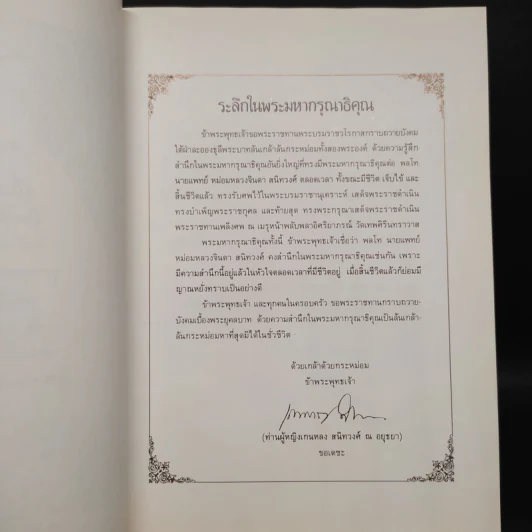 ระลึกในพระมหากรุณาธิคุณ
ข้าพระพุทธเจ้าขอพระราชทานพระบรมราชวโรกาสกราบถวายบังคม
ใต้ฝ่าละอองธุลีพระบาทล้นเกล้าล้นกระหม่อมทั้งสองพระองค์ ด้วยความรู้สึก
สำนึกในพระมหากรุณาธิคุณอันยิ่งใหญ่ที่ทรงมีพระมหากรุณาธิคุณต่อ พลโท
นายแพทย์ หม่อมหลวงจินดา สนิทวงศ์ ตลอดเวลา ทั้งขณะมีชีวิต เจ็บไข้ และ
สิ้นชีวิตแล้ว ทรงรับศพไว้ในพระบรมราชานุเคราะห์ เสด็จพระราชดำเนิน
ทรงบำเพ็ญพระราชกุศล และท้ายสุด ทรงพระกรุณาเสด็จพระราชดำเนิน
พระราชทานเพลิงศพ ณ เมรุหน้าพลับพลาอิศริยาภรณ์ วัดเทพศิรินทราวาส
พระมหากรุณาธิคุณทั้งนี้ ข้าพระพุทธเจ้าเชื่อว่า พลโท นายแพทย์
หม่อมหลวงจินดา สนิทวงศ์ คงสำนึกในพระมหากรุณาธิคุณเช่นกัน เพราะ
มีความสำนึกนี้อยู่แล้วในหัวใจตลอดเวลาที่มีชีวิตอยู่ เมื่อสิ้นชีวิตแล้วก็ย่อมมี
ญาณหยั่งทราบเป็นอย่างดี
ข้าพระพุทธเจ้า และทุกคนในครอบครัว ขอพระราชทานกราบถวาย-
บังคมเบื้องพระยุคลบาท ด้วยความสำนึกในพระมหากรุณาธิคุณเป็นล้นเกล้า-
ล้นกระหม่อมหาที่สุดมิได้ในชั่วชีวิต
ด้วยเกล้าด้วยกระหม่อม
ข้าพระพุทธเจ้า
(ท่านผู้หญิงแกนหลง สนิทวงศ์ ณ อยุธยา)
ขอเดชะ